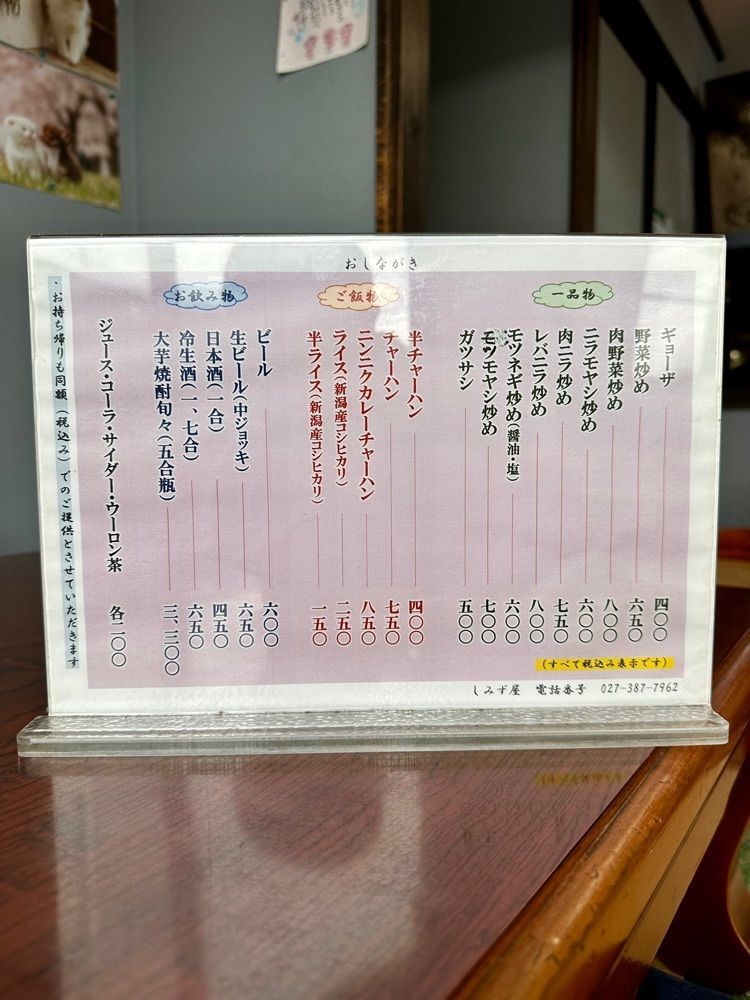 おしながき
一品物
ギョーザ 四〇〇
野菜炒め 六五〇
肉野菜炒め 八〇〇
ニラモヤシ炒め 六〇〇
肉ニラ炒め 七五〇
レバニラ炒め 八〇〇
モツネギ炒め(醤油・塩) 六〇〇
モツモヤシ炒め 七〇〇
ガツサシ 五〇〇
(すべて税込み表示です)
ご飯物
半チャーハン 四〇〇
チャーハン 七五〇
ニンニクカレーチャーハン 八五〇
ライス(新潟産コシヒカリ) 二五〇
半ライス(新潟産コシヒカリ) 一五〇
お飲み物
ビール 六〇〇
生ビール(中ジョッキ) 六五〇
日本酒(一合) 四五〇
冷生酒(一、七合) 六五〇
大芋焼酎旬々(五合瓶) 三、三〇〇
ジュース・コーラ・サイダー・ウーロン茶 各二〇〇
・お持ち帰りも同額(税込み)でのご提供とさせていただきます
しみず屋 電話番号 027-387-7962